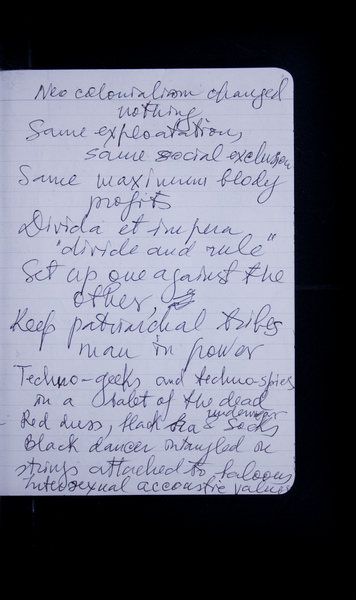 Neo colonialism changed
nothing
Same exploatation,
same social exclusion
Same maximum bloody
profits
Divida et impera
"divide and rule"
Set up one against the
other,
Keep patriarchal tribes
man in power
Techno-geeks and techno-spies
in a balet of the dead
underwear
Red duss, black bra & socks
Black dancer intangled in
strings attached to baloons
Intersexual accoustic values